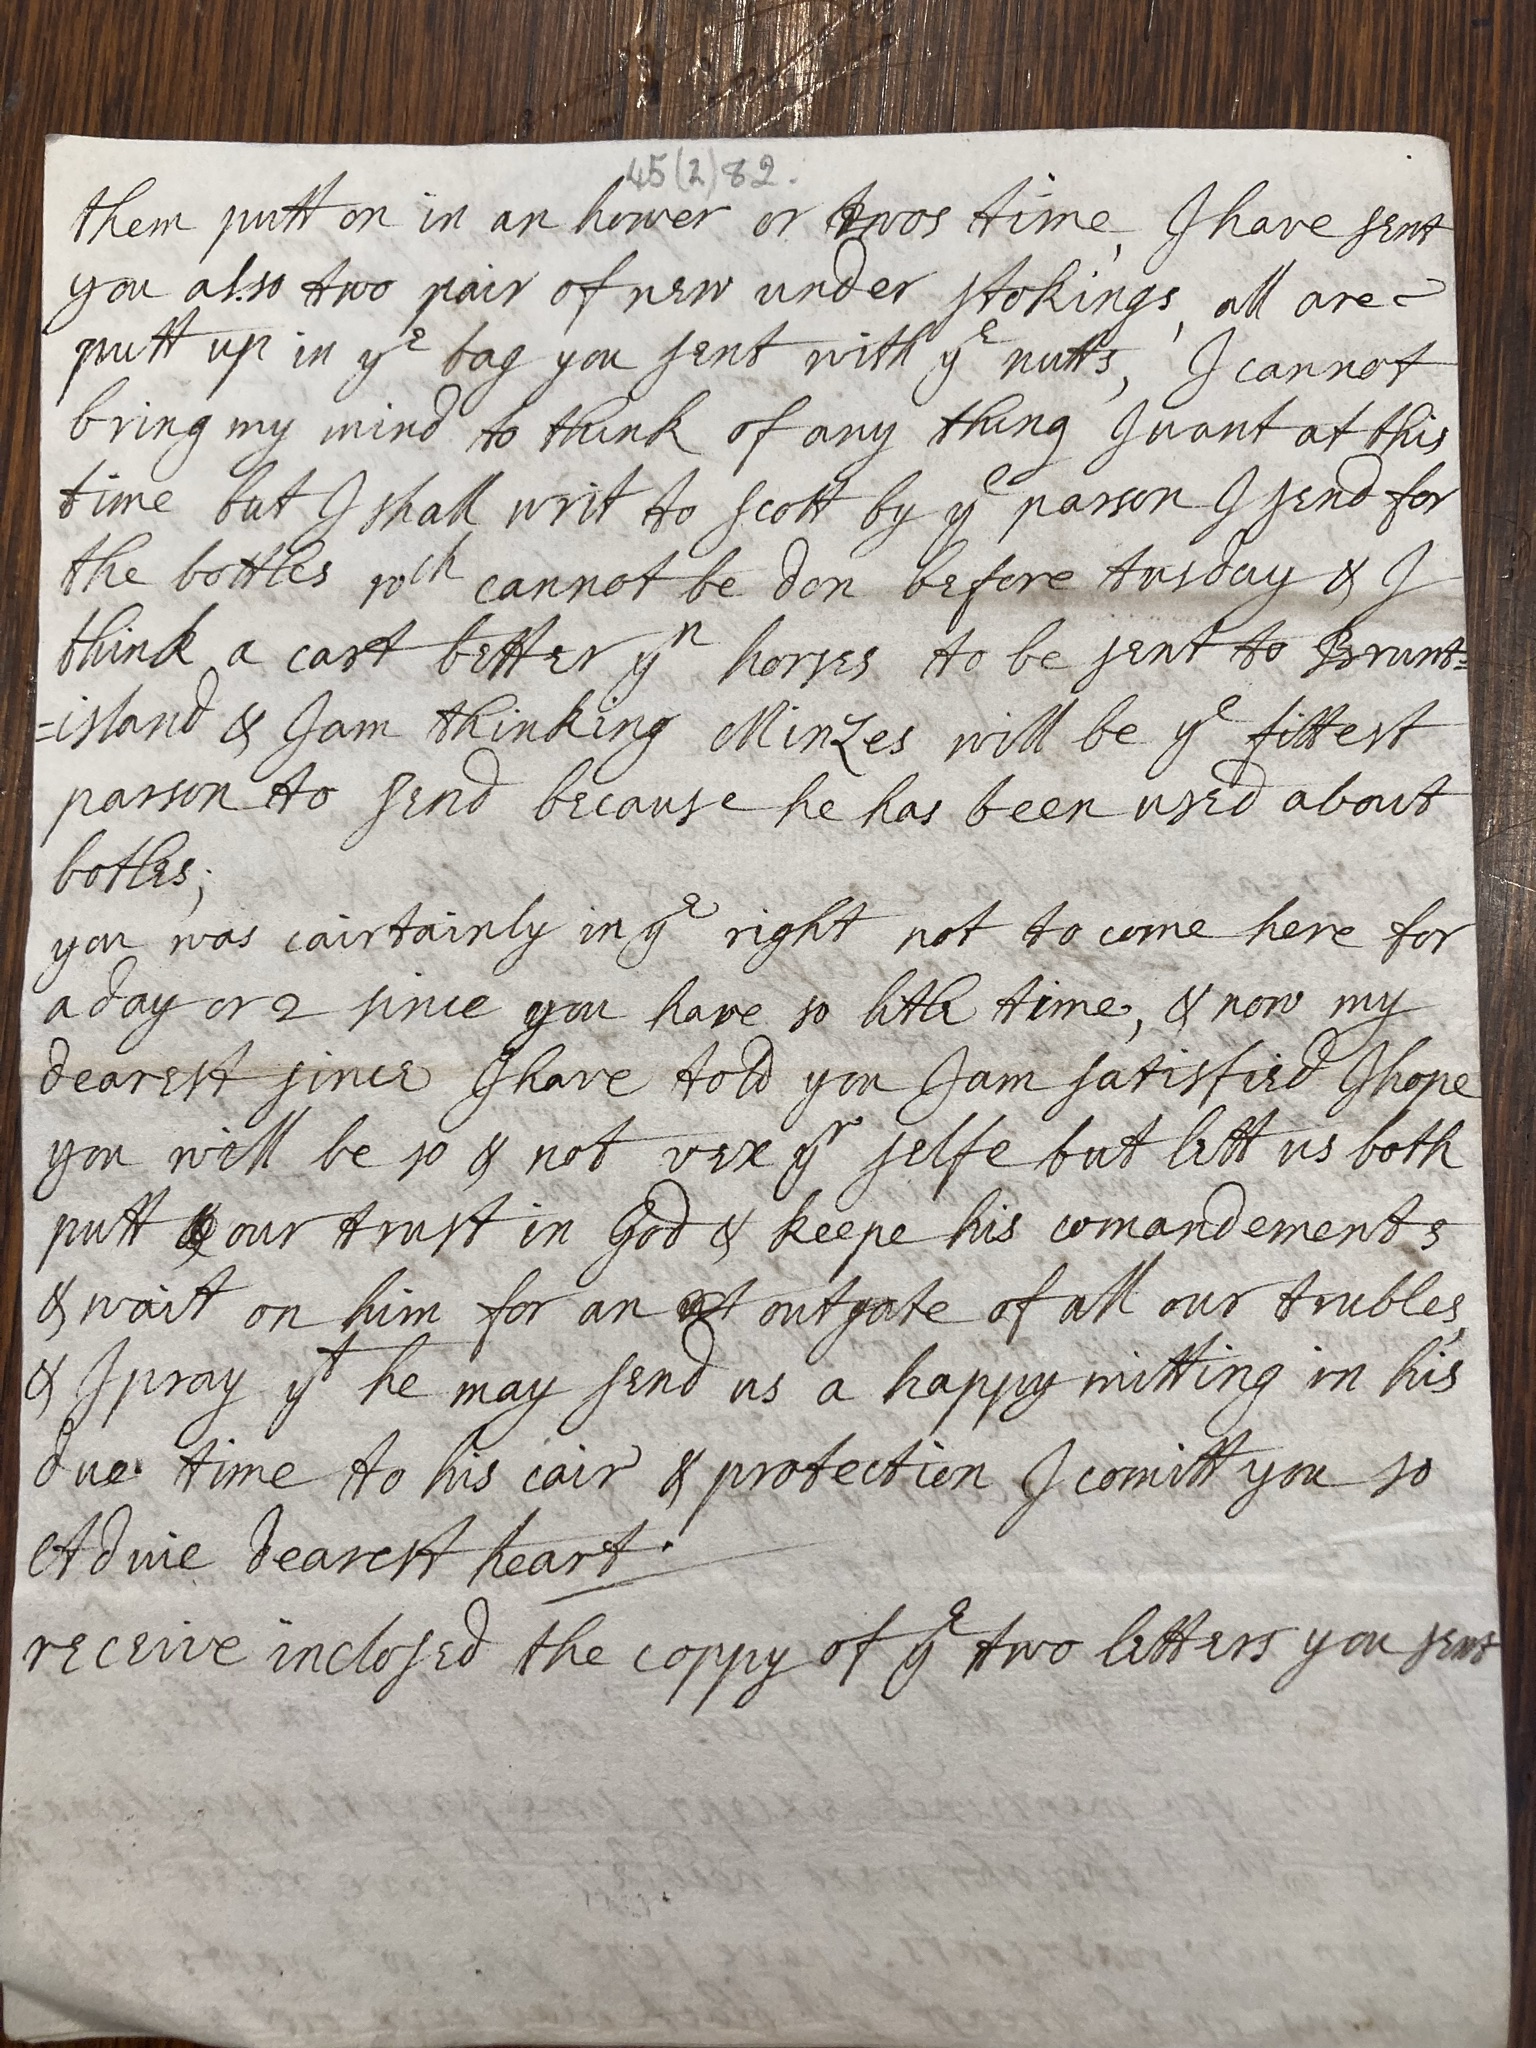 45(2)82.
them putt on in an hower or twos time, I have sent
you also two pair of new under stokings, all are
putt up in ye bag you sent with ye nutts, I cannot
bring my mind to think of any thing I want at this
time but I shall writ to Scott by ye parson I send for
the bottles wch cannot be don before tusday & I
think a cart better yn horses to be sent to Brunt=
=island & I am thinking Minzes will be ye fittest
parson to send because he has been used about
botles;
you was cairtainly in ye right not to come here for
a day or 2 since you have so litle time, & now my
dearest since I have told you I am satisfied I hope
you will be so & not vex yr selfe but lett us both
putt our trust in God & keepe his comandements
& wait on him for an outgate of all our trubles,
& I pray yt he may send us a happy mitting in his
due time to his cair & protection I comitt you so
Aduie dearest heart.
receive inclosed the coppy of ye two letters you sent